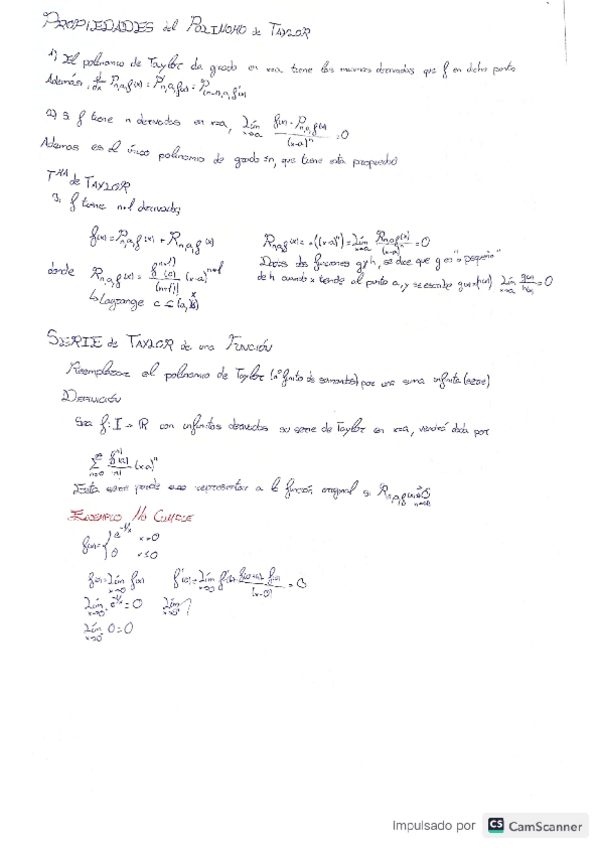 PROPIEDADES del POLINOMIO de TAYLOR
1) El polinomio de Taylor de grado en x=a tiene las mismas derivadas que f en dicho punto
Además, d/dx Pn,a,f(x) = P'n,a,f(x) = Pn-1,a,f'(x)
2) Si f tiene n derivadas en x=a, lim x→a (f(x) - Pn,a,f(x))/(x-a)^n = 0
Además es el único polinomio de grado ≤n, que tiene esta propiedad
TMA de TAYLOR
Si f tiene n+1 derivadas
f(x) = Pn,a,f(x) + Rn,a,f(x)
donde Rn,a,f(x) = f^(n+1)(c)/(n+1)! (x-a)^n+1
↳ Lagrange
Rn,a,f(x) = o((x-a)^n) = lim x→a Rn,a,f(x)/(x-a)^n = 0
Dadas dos funciones g y h, se dice que g es "o pequeña"
de h cuando x tiende al punto a, y se escribe g(x)=o(h(x)) lim x→a g(x)/h(x) = 0
SERIE de TAYLOR de una FUNCIÓN
Reemplazar el polinomio de Taylor (nº finito de sumandos) por una suma infinita (serie)
DEFINICIÓN
Sea f: I → R con infinitas derivadas su serie de Taylor en x=a, vendrá dada por
∞ Σ n=0 f^(n)(a)/n! (x-a)^n
Esta serie puede representar a la función original si Rn,a,f(x) → 0 n→∞
EJEMPLO NO CUMPLE
f(x) = { e^-1/x x>0
0 x≤0
f(0) = lim x→0 f(x)
lim x→0 e^-1/x = 0
lim x→0 0 = 0